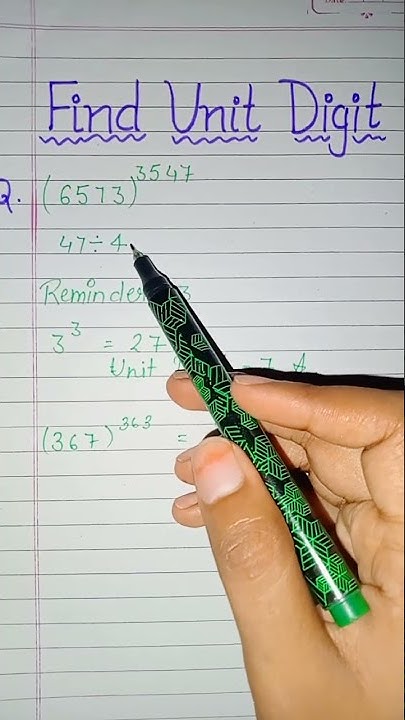 Find Unit Digit
Q. (6573)^3547
47 ÷ 4
Reminder 3
3^3 = 27
Unit = 7
(367)^363 =